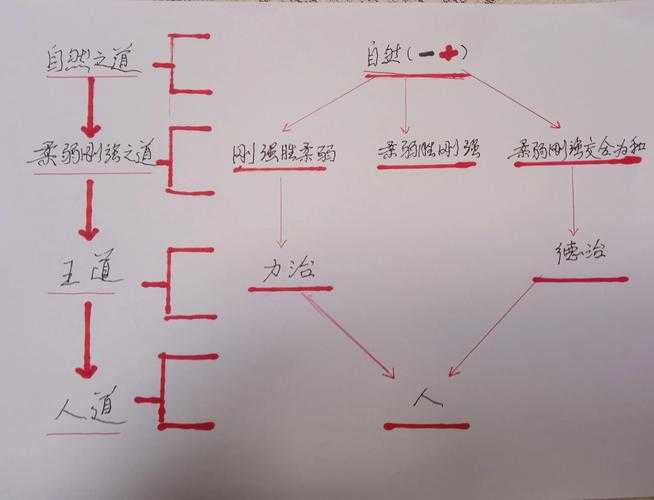 自然之道
自然(－+)
柔弱刚强之道
刚强胜柔弱
柔弱胜刚强
柔弱刚强交会为和
王道
力治
德治
人道
人